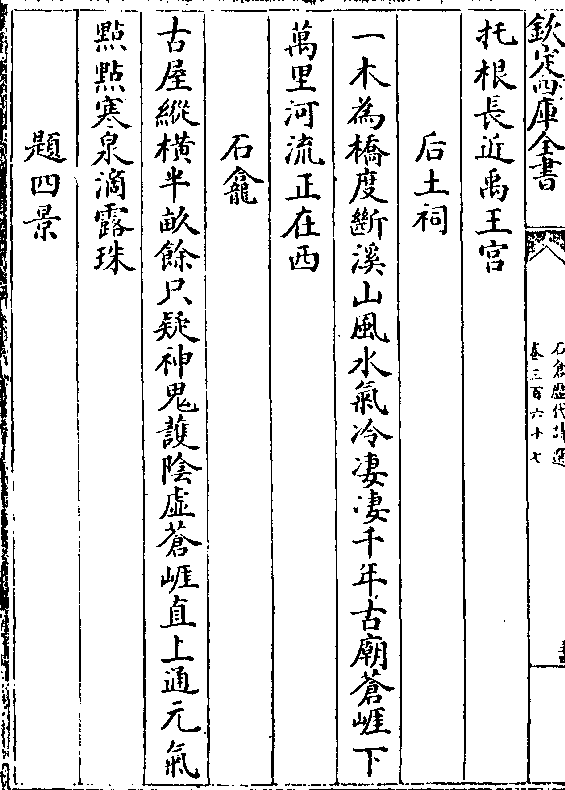 欽定四庫全書
石倉歷代詩選
卷三百六十七
托根長近禹王宮
后土祠
一木為橋度斷溪山風水氣冷凄凄千年古廟蒼崕下
萬里河流正在西
石龕
古屋縱橫半畝餘只疑神鬼護陰虛蒼崕直上通元氣
點點寒泉滴露珠
題四景